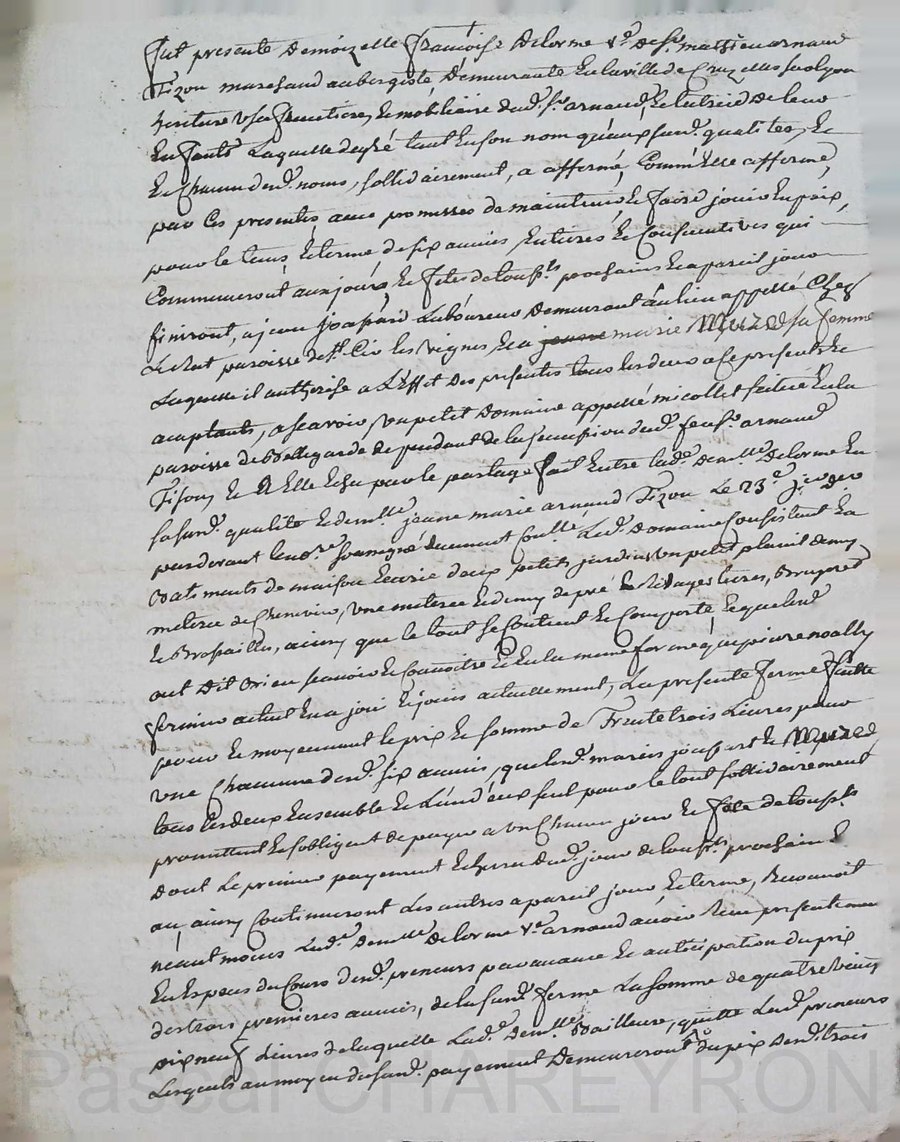 fut presente Demoizelle francoise Delorme v.e de s.r mathieu arnaud
Tizon marchand aubergiste Demeurante en la ville de
heritiere usufruitiere, le mobiliaire dud. s.r arnaud, et tutrice de leur
Enfants Laquelle degré tant en son nom qu'aux susd. qualites, et
En Chacun desd. noms, sollidairement, a affermé, Comme Elle afferme,
par Ces presentes, avec promesses de maintenir et faire jouir en paix,
pour le tems et terme de six années Entieres et Consecutives qui
Commenceront aux jour, et fetes de tous.ts prochains et a pareil jour
finiront, a jean joaspard Laboureur Demeurant au lieu appellé Chez
paroisse de s.t Cir les vignes et a jeanne marie Muzed sa femme
Laquelle il authorise a L'Effet Des presentes tous les deux a ce presents et
acceptants, ascavoir, un petit Domaine appellé micollet scitué En la
paroisse de Bellegarde dependant de la succession dud. feu s.r arnaud
Tison, et a Elle Echu par le partage fait Entre lad. dem.lle Delorme En
sa susd. qualité et dem.lle jeanne marie arnaud Tizon Le 23.e
pardevant le no.re soussigné duement Con.llé Led. Domaine Consistant En
Batiments de maison Ecurie deux petits jardins, un petit plant demy
meteree de Cheneviere, une meteree et demy de pré et Pasquages terres, Bruyeres
et Brossailles, ainsy que le tout se Contient et Comporte, lequel ils
ont Dit bien scavoir et Connoitre Et En la meme forme qu'a pierre noally
fermier actuel En a joui Et jouit actuellement, La presente ferme faitte
pour et moyennant le prix et somme de Trente trois Livres pour
une Chacunne desd. six années, que lesd. mariés joaspart et Muzed
tous les deux Ensemble et L'un d'eux seul pour le tout sollidairement
promettent et s'obligent de payer a un Chacun jour et fete de tous.ts
dont Le premier payement Echerra dud. jour de tous.ts prochain En
an, ainsy Continueront Les autres a pareil jour et terme, Reconoit
neant moins Lad. demlle Delorme v.e arnaud avoir Recu presentement
En Especes du Cours desd. preneurs par avance et anticipation du prix
des trois premieres années, de la susd. ferme La somme de quatre vingt
dix neuf Livres de laquelle Lad. demlle Bailleure, quitte Lesd. preneurs
Lesquels au moyen du susd. payement Demeureront du prix desd. trois
Pascal CHAREYRON